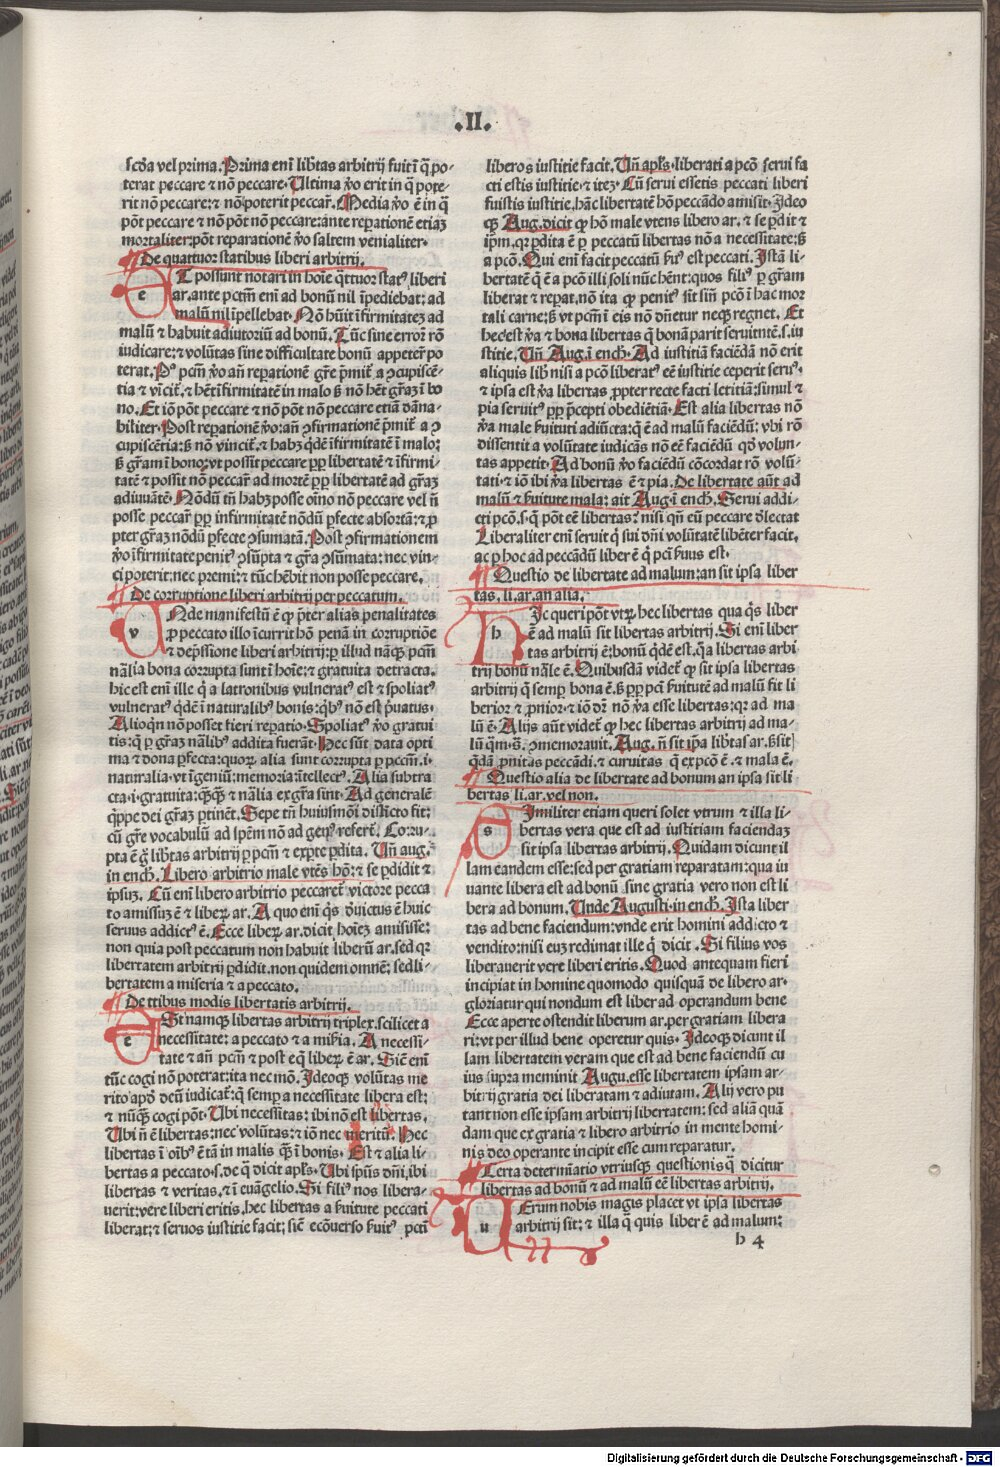 .II.
scđa vel prima. Prima eni libtas arbitrij fuit ī q̄ po-
terat peccare ⁊ nō peccare. Ultima v̄o erit in q̄ pote-
rit nō peccare: ⁊ nō poterit peccar̄. Media v̄o ē in q̄
pōt peccare ⁊ nō pōt nō peccare: ante repationē etiaȝ
mortaliter: pōt reparationē v̄o saltem venialiter.
De quattuor statibus liberi arbitrij.
Et possunt notari in hoīe q̄ttuor statꝰ liberi
ar. ante pctm̄ eni ad bonū nil īpediebat: ad
malū nil īpellebat. Nō hūit īfirmitateȝ ad
malū ⁊ habuit adiutoriū ad bonū. Tūc sine error̄ rō
iudicare: ⁊ volūtas sine difficultate bonū appeter̄ po
terat. Pꝰ pctm̄ v̄o añ repationē gr̄e p̄mit̄ a ꝯcupiscē-
tia ⁊ vīcit̄. ⁊ hēt īfirmitatē in malo ß nō hēt gr̄aȝ ī bo
no. Et iō pōt peccare ⁊ nō pōt nō peccare etiā dāna-
biliter. Post repationē v̄o: añ ꝯfirmationē p̄mit̄ a ꝯ
cupiscētia: ß nō vincit̄. ⁊ habȝ qdē īfirmitatē ī malo:
ß gr̄am ī bono: vt possit peccare ꝓp libertatē ⁊ īfirmi-
tatē ⁊ possit nō peccar̄ ad mortē ꝓp libertatē ad gr̄aȝ
adiuuātē. Nōdū tñ habȝ posse oīno nō peccare vel ñ
posse peccar̄ ꝓp infirmitatē nōdū ꝑfecte absortā: ⁊ ꝓ
pter gr̄aȝ nōdū ꝑfecte ꝯsumatā. Post ꝯfirmationem
v̄o īfirmitate penitꝰ ꝯsūpta ⁊ gr̄a ꝯsūmata: nec vin-
ci poterit: nec premi: ⁊ tūc hēbit non posse peccare.
De corruptione liberi arbitrij per peccatum.
Unde manifestū ē ꝙ p̄ter alias penalitates
ꝓ peccato illo īcurrit hō penā in corruptiōe
⁊ dep̄ssione liberi arbitrij: ꝑ illud nāqꝫ pctm̄
nālia bona corrupta sunt ī hoīe: ⁊ gratuita detracta.
hic est eni ille q̄ a latronibus vulneratꝰ est ⁊ spoliatꝰ
vulneratꝰ qdē ī naturalibꝰ bonis: qbꝰ nō est p̄uatus.
Alioqn nō posset fieri repatio. Spoliatꝰ v̄o gratui
tis: q̄ ꝑ gr̄aȝ nālibꝰ addita fuerāt. Hec sūt data opti
ma ⁊ dona ꝑfecta: quoꝝ alia sunt corrupta ꝑ pctm̄.i.
naturalia vt īgeniū: memoria: ītellectꝰ. Alia subtra
cta.i. gratuita: qꝙ̄ꝫ ⁊ nālia ex gr̄a sint. Ad generalē
qppe dei gr̄aȝ ꝑtinēt. Sepe tñ huiusmōi distīctio fit:
cū gr̄e vocabulū ad sp̄em nō ad genꝰ refert̄. Corru-
pta ē g̊ libtas arbitrij ꝑ pctm̄ ⁊ ex pte ꝑdita. Uñ aug.
in ench̄. Libero arbitrio male vtēs hō: ⁊ se ꝑdidit ⁊
ipsuȝ. Cū eni libero arbitrio peccaret victore pecca
to amissuȝ ē ⁊ liberꝝ ar. A quo eni qs deuictus ē huic
seruus addictꝰ ē. Ecce liberꝝ ar. dicit hoīeȝ amisisse:
non quia post peccatum non habuit liberū ar. sed qꝛ
libertatem arbitrij ꝑdidit. non quidem omnē: sed li-
bertatem a miseria ⁊ a peccato.
De tribus modis libertatis arbitrij.
Est namqꝫ libertas arbitrij triplex. scilicet a
necessitate: a peccato ⁊ a mīsia. A necessi-
tate ⁊ añ pctm̄ ⁊ post eq̄ liberꝝ ē ar. Sic̄ eni
tūc cogi nō poterat: ita nec mō. Ideoqꝫ volūtas me
rito apd̄ deū iudicat̄: q̄ semꝑ a necessitate libera est:
⁊ nūqꝫ cogi pōt. Ubi necessitas: ibi nō est libertas.
Ubi ñ ē libertas: nec volūtas: ⁊ iō nec meritū. Hec
libertas ī oībꝰ ē tā in malis qꝫ ī bonis. Est ⁊ alia li-
bertas a peccato. s. de q̄ dicit apl̄s. Ubi spūs dñi, ibi
libertas ⁊ veritas. ⁊ ī euāgelio. Si filiꝰ nos libera-
uerit: vere liberi eritis. hec libertas a s̄uitute peccati
liberat: ⁊ seruos iustitie facit: sic̄ ecōuerso s̄uitꝰ pctī
liberos iustitie facit. Uñ apl̄s. liberati a pcō serui fa
cti estis iustitie. ⁊ iteȝ. Cū serui essetis peccati liberi
fuistis iustitie. hāc libertatē hō peccādo amisit. Ideo
qꝫ Aug. dicit ꝙ hō male vtens libero ar. ⁊ se ꝑdit ⁊
ip̄m. qꝛ ꝑdita ē ꝑ peccatū libertas nō a necessitate: ß
a pcō. Qui eni facit peccatū s̄uꝰ est peccati. Istā li-
bertatē q̄ ē a pcō illi soli nūc hēnt: quos filiꝰ ꝑ gr̄am
liberat ⁊ repat. nō ita ꝙ penitꝰ sīt sin̄ pcō ī hac mor
tali carne: ß vt pctm̄ ī eis nō dn̄etur neqꝫ regnet. Et
hec est v̄a ⁊ bona libertas q̄ bonā parit seruitutē. s. iu
stitie. Uñ Aug. ī ench̄. Ad iustitiā faciēdā nō erit
aliquis lib nisi a pcō liberatꝰ eē iustitie ceperit seruꝰ.
⁊ ipsa est v̄a libertas ꝓpter recte facti letitiā: simul ⁊
pia seruitꝰ ꝓp p̄cepti obedietiā. Est alia libertas nō
v̄a male s̄uituti adiūcta: q̄ ē ad malū faciēdū: vbi rō
dissentit a volūtate iudicās nō eē faciēdū qd̄ volun-
tas appetit. Ad bonū v̄o faciēdū cōcordat rō volū-
tati: ⁊ iō ibi v̄a libertas ē ⁊ pia. De libertate aūt ad
malū ⁊ s̄uitute mala: ait Aug. ī ench̄. Serui addi-
cti pcō. s. q̄ pōt eē libertas? nisi qn̄ eū peccare d̄lectat
Liberaliter eni seruit q sui dñi volūtatē libēter facit.
ac ꝑ hoc ad peccādū liber ē q pcī s̄uus est.
Questio de libertate ad malum: an sit ipsa liber
tas. li. ar. an alia.
Hic queri pōt vtꝝ hec libertas qua qs liber
ē ad malū sit libertas arbitrij. Si eni liber
tas arbitrij ē: bonū qdē est. qꝛ a libertas arbi
trij bonū nāle ē. Quibusdā videt̄ ꝙ sit ipsa libertas
arbitrij q̄ semꝑ bona ē. ß ꝓp pcī s̄uitutē ad malū fit li
berior ⁊ ꝓnior. ⁊ iō dr̄ nō v̄a esse libertas: qꝛ ad ma
lū ē. Alijs aūt videt̄ ꝙ hec libertas arbitrij ad ma-
lū qm̄. s̄. ꝯmemorauit. Aug. ñ sit ip̄a libtas ar. ß sit
qdā ꝓnitas peccādi. ⁊ curuitas q̄ ex pcō ē. ⁊ mala ē.
Questio alia de libertate ad bonum an ipsa sit li
bertas li. ar. vel non.
Similiter etiam queri solet vtrum ⁊ illa li-
bertas vera que est ad iustitiam faciendaȝ
sit ipsa libertas arbitrij. Quidam dicunt il
lam eandem esse: sed per gratiam reparatam: qua iu
uante libera est ad bonū sine gratia vero non est li
bera ad bonum. Unde Augusti. in ench̄. Ista liber
tas ad bene faciendum: vnde erit homini addicto ⁊
vendito: nisi euȝ redimat ille q̄ dicit. Si filius vos
liberauerit vere liberi eritis. Quod antequam fieri
incipiat in homine quomodo quisquā de libero ar.
gloriatur qui nondum est liber ad operandum bene
Ecce aperte ostendit liberum ar. per gratiam libera
ri: vt per illud bene operetur quis. Ideoqꝫ dicunt il
lam libertatem veram que est ad bene faciendū cu
ius supra meminit Augu. esse libertatem ipsam ar-
bitrij gratia dei liberatam ⁊ adiutam. Alij vero pu
tant non esse ipsam arbitrij libertatem: sed aliā quā
dam que ex gratia ⁊ libero arbitrio in mente homi-
nis deo operante incipit esse cum reparatur.
Certa determiatio vtriusqꝫ questionis q̄ dicitur
libertas ad bonū ⁊ ad malū eē libertas arbitrij.
Uerum nobis magis placet vt ipsa libertas
arbitrij sit: ⁊ illa q̄ quis liber ē ad malum:
b 4
Digitalisierung gefördert durch die Deutsche Forschungsgemeinschaft - DFG